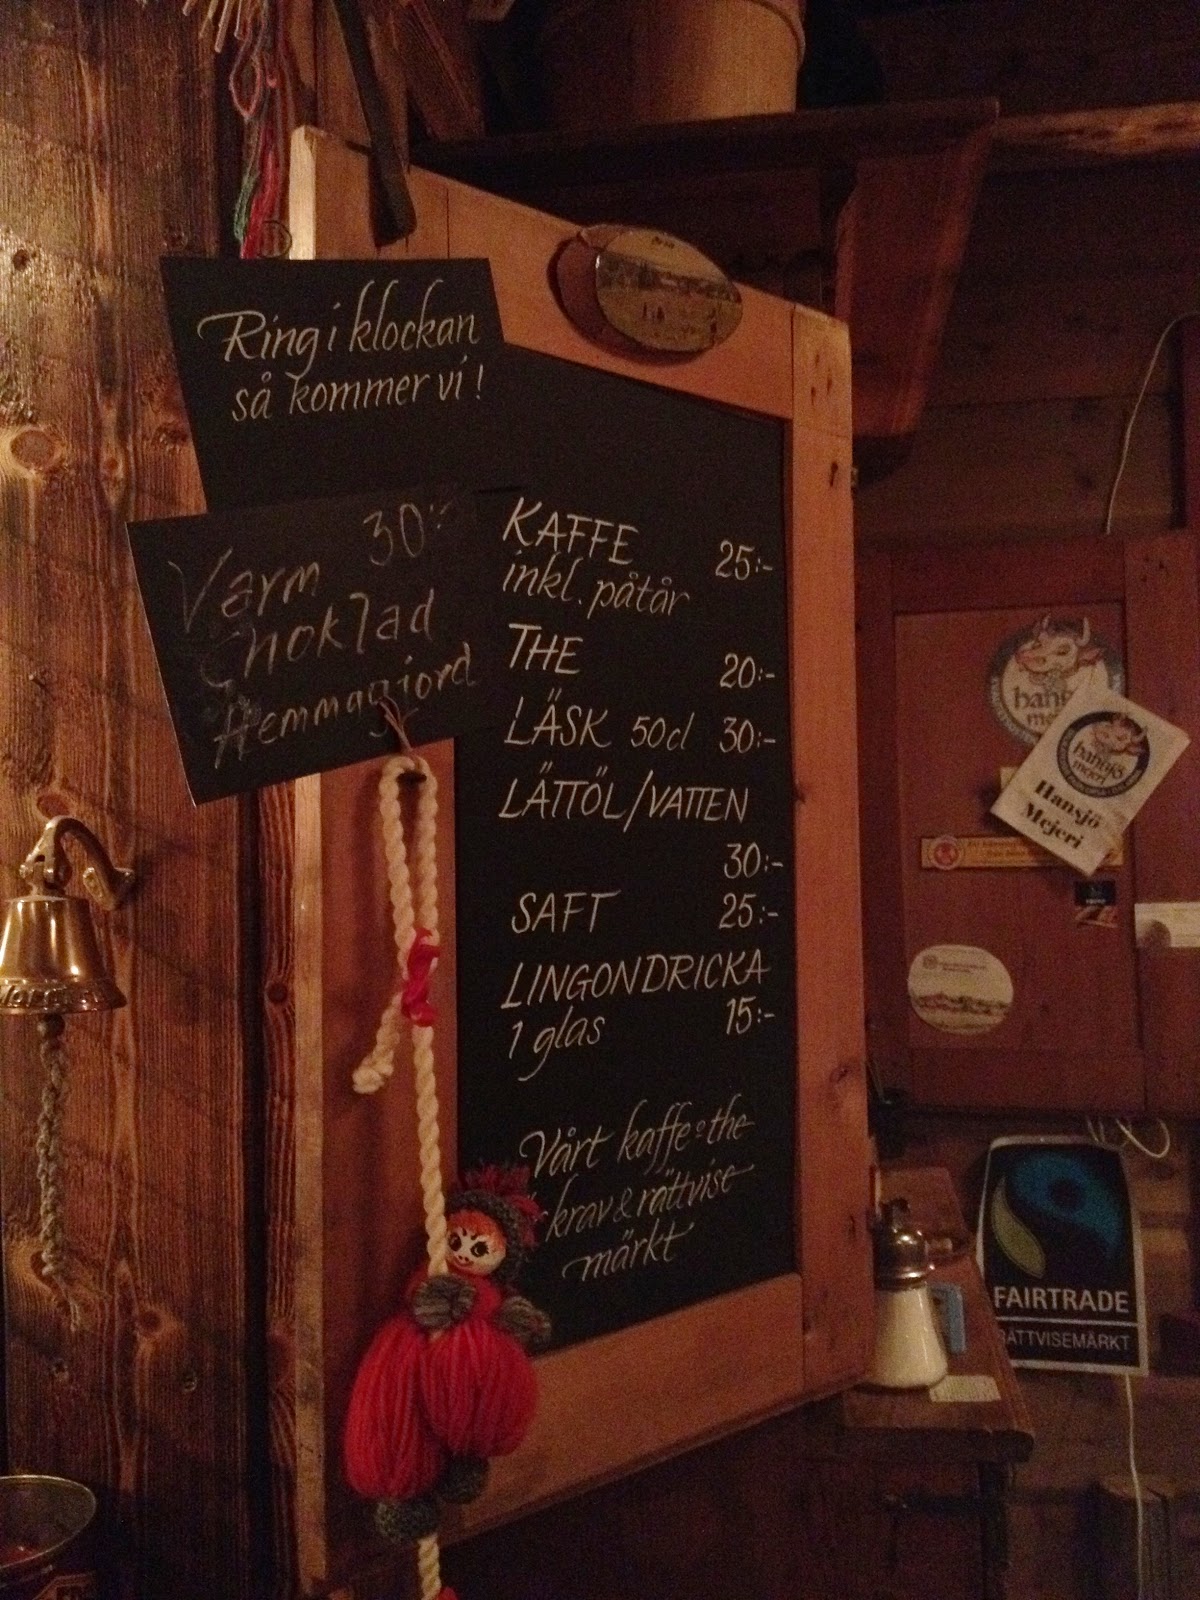 Ring i klockan
så kommer vi!
Varm 30:-
Choklad
Hemmagjord
KAFFE
inkl. påtår 25:-
THE 20:-
LÄSK 50cl 30:-
LÄTTÖL/VATTEN
30:-
SAFT 25:-
LINGONDRICKA
1 glas 15:-
Vårt kaffe o the
krav & rättvise
märkt
hansjö
mejeri
Hansjö
Mejeri
FAIRTRADE
RÄTTVISEMÄRKT